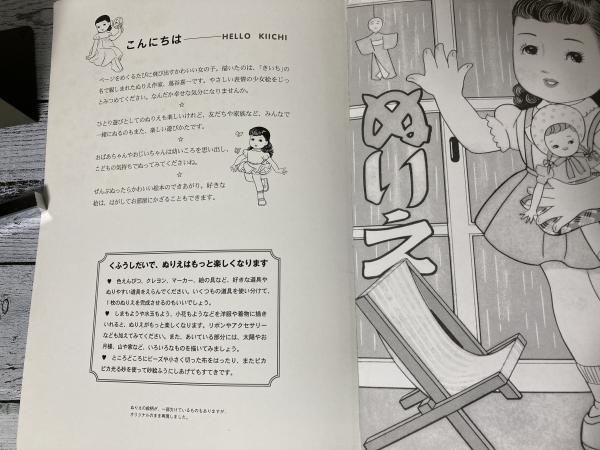 こんにちは——HELLO KIICHI
ページをめくるたびに飛び出すかわいい女の子。描いたのは、「きいち」の
名で親しまれたぬりえ作家、蔦谷喜一です。やさしい表情の少女絵をじっ
とみつめてください。なんだか幸せな気分になりませんか。
☆
ひとり遊びとしてのぬりえも楽しいけれど、友だちや家族など、みんなで
一緒にぬるのもまた、楽しい遊びかたです。
☆
おばあちゃんやおじいちゃんは幼いころを思い出し、
こどもの気持ちでぬってみてくださいね。
☆
ぜんぶぬったらかわいい絵本のできあがり。好きな
絵は、はがしてお部屋にかざることもできます。
くふうしだいで、ぬりえはもっと楽しくなります
♥ 色えんぴつ、クレヨン、マーカー、絵の具など、好きな道具や
ぬりやすい道具をえらんでください。いくつもの道具を使い分けて、
1枚のぬりえを完成させるのもいいでしょう。
♥ しまもようや水玉もよう、小花もようなどを洋服や着物に描き
いれると、ぬりえがもっと楽しくなります。リボンやアクセサリー
なども加えてみてください。また、あいている部分には、太陽やお
月様、山や家など、いろいろなものを描いてみましょう。
♥ ところどころにビーズや小さく切った布をはったり、またピカ
ピカ光る砂を使って砂絵ふうにしあげてもすてきです。
ぬりえの絵柄が、一部欠けているものもありますが、
オリジナルのまま再現しました。
ぬりえ